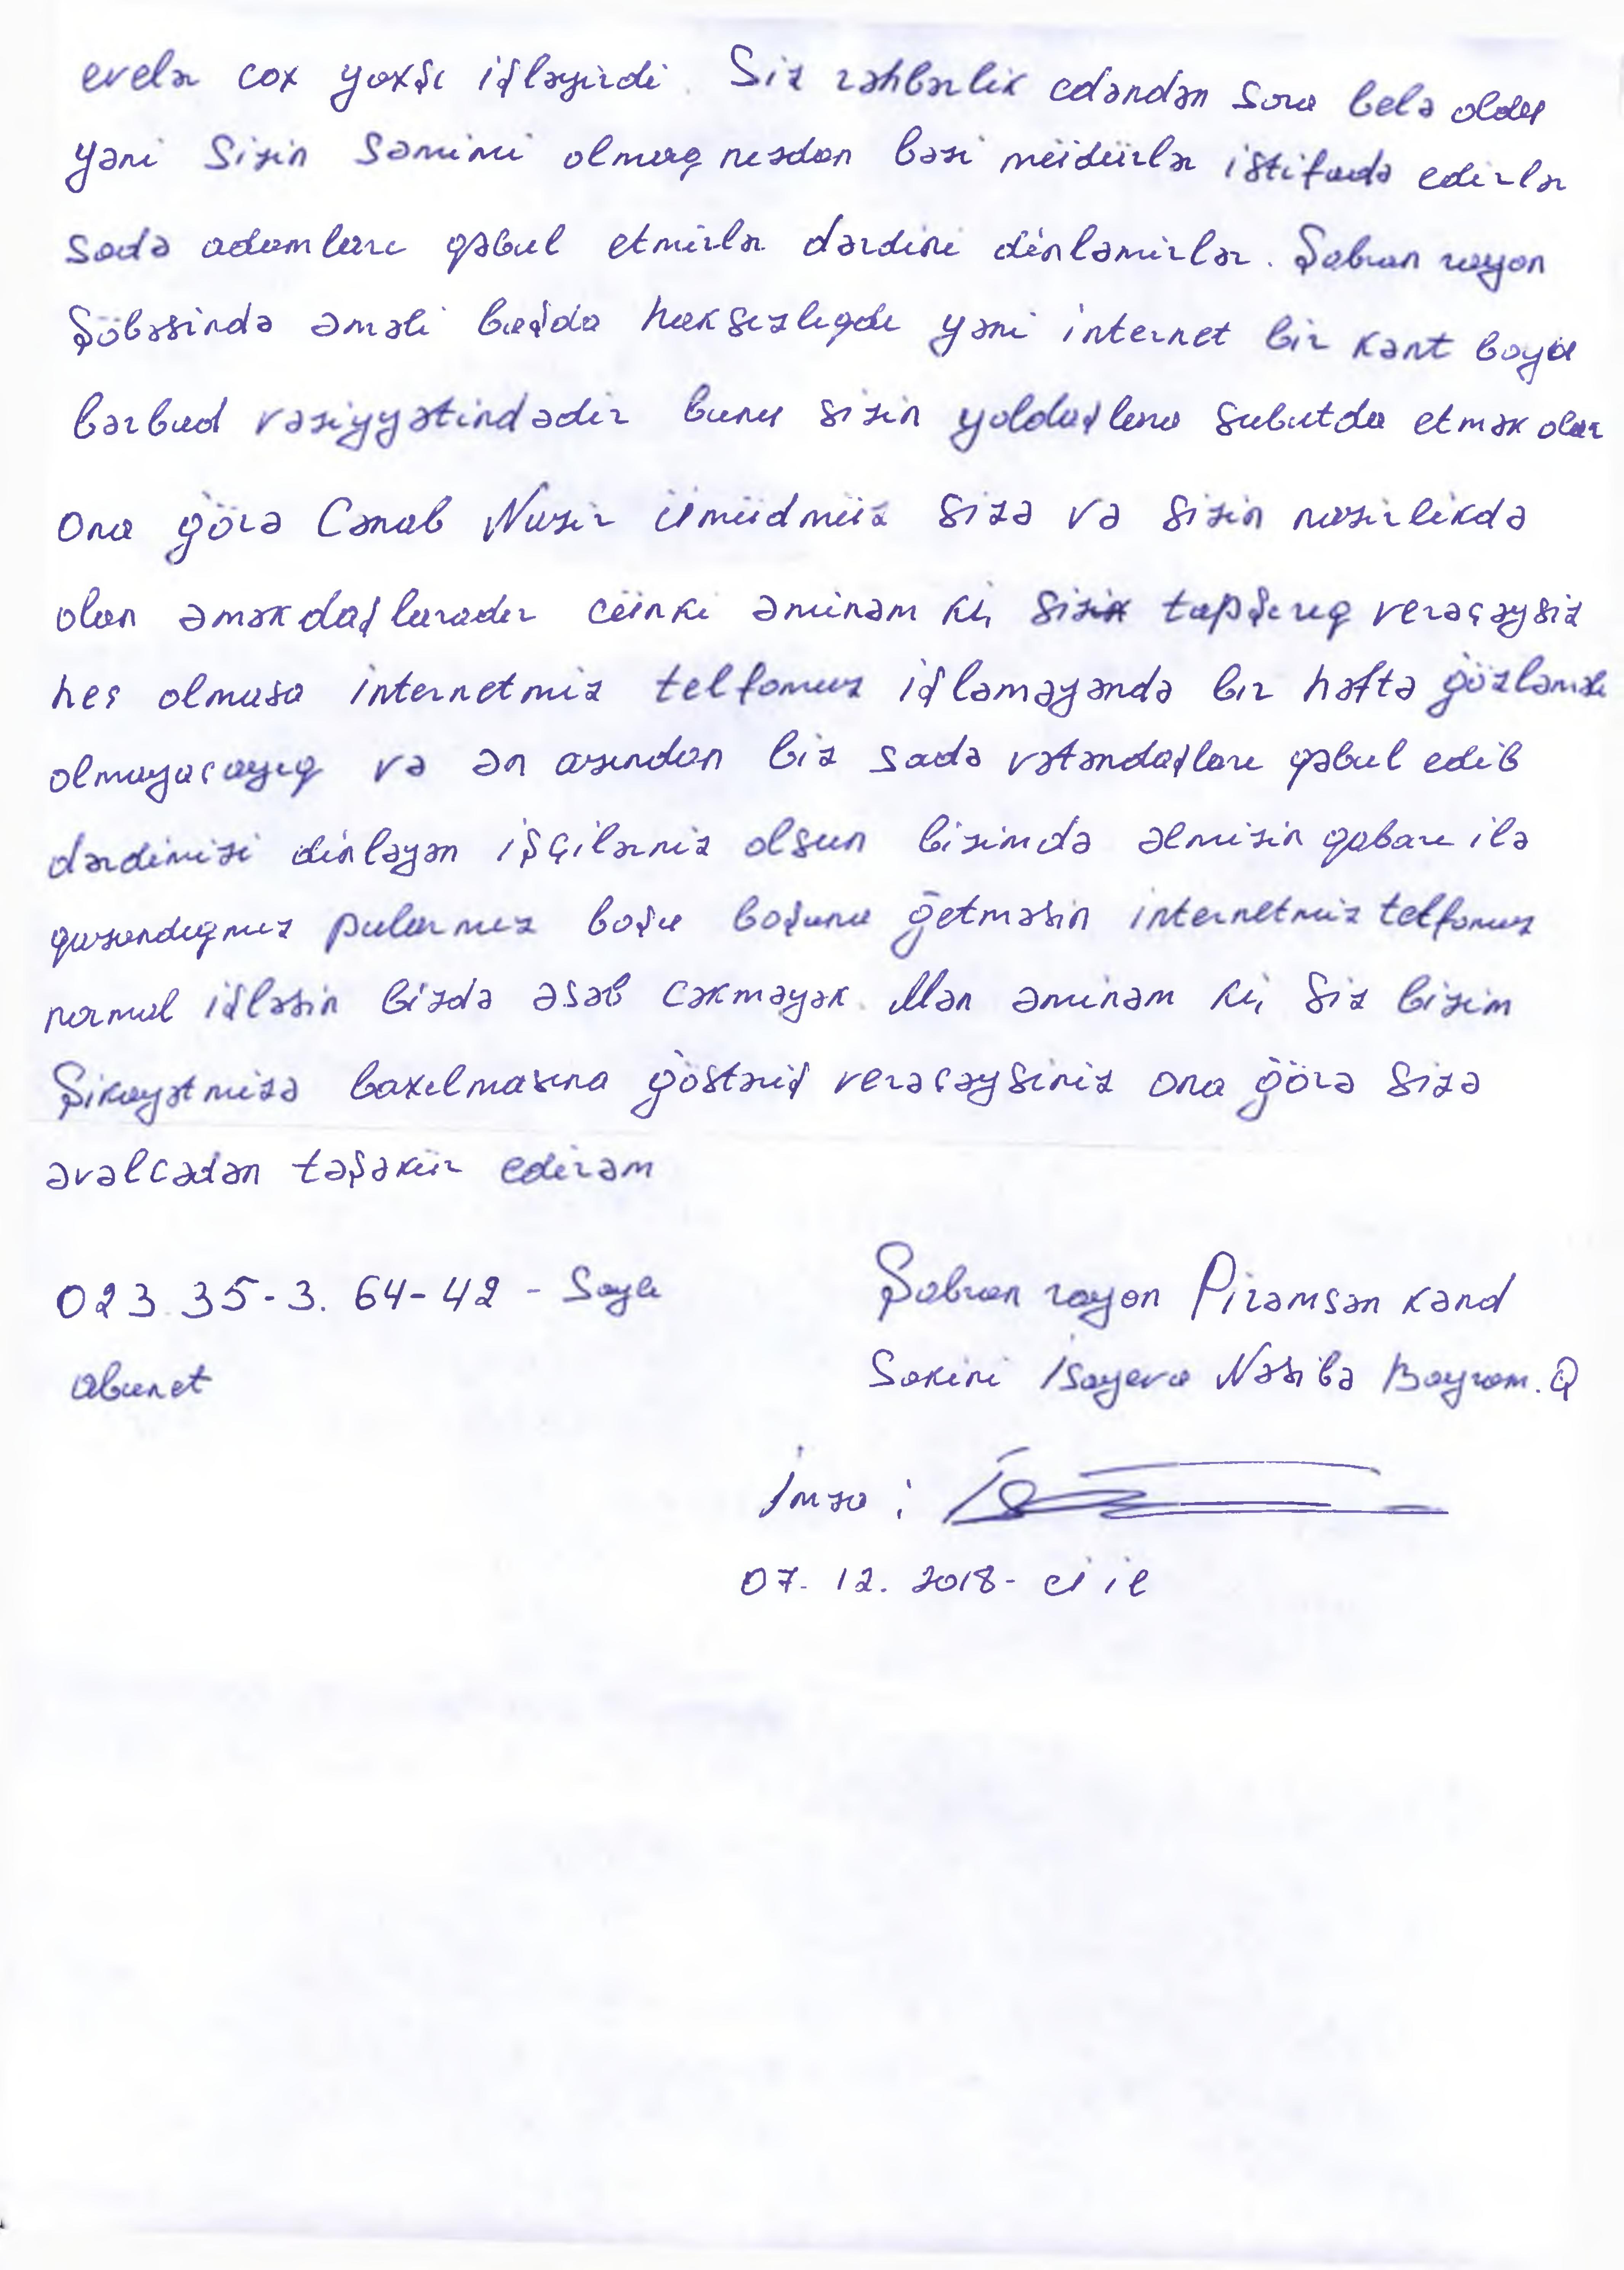 evelər cox yaxşı işləyirdi. Siz rəhbərlik edəndən sora belə oldu
yəni Sizin Səmimi olmagnızdan bəzi müdürlər istifadə edirlər
Sadə adamları qəbul etmirlər dərdini dinləmirlər. Şabran rayon
Şöbəsində əməli başda haksızlıgdı yəni internet bir kənt boyu
bərbad vəziyyətindədir bunu sizin yoldaşlara subutda etmək olar
Ona görə Cənab Nazir ümüdmüz sizə və sizin nazirlikdə
olan əməkdaşlaradır cünki əminəm ki, tapşırıg verəcəysiz
heç olmasa internetmiz telfomuz işləməyəndə bir həftə gözləməli
olmayacayıg və ən azından biz sadə vətəndaşları qəbul edib
dərdimizi dinləyən işçilərniz olsun bizimdə əlmizin qabarı ilə
qazandıgmız pularmız boşu boşuna getməsin internetmiz telfomuz
normal işləsin bizdə əsəb cəkməyək. Mən əminəm ki, Siz bizim
Şikayətmizə baxılmasına göstəriş verəcəysiniz ona görə Sizə
əvəlcədən təşəkür edirəm
023 35-3. 64-42 - Saylı
abunət
Şabran rayon Pirəmsən kənd
Sakini İsayeva Nəsibə Bayram. Q
İmza:
07. 12. 2018- ci il